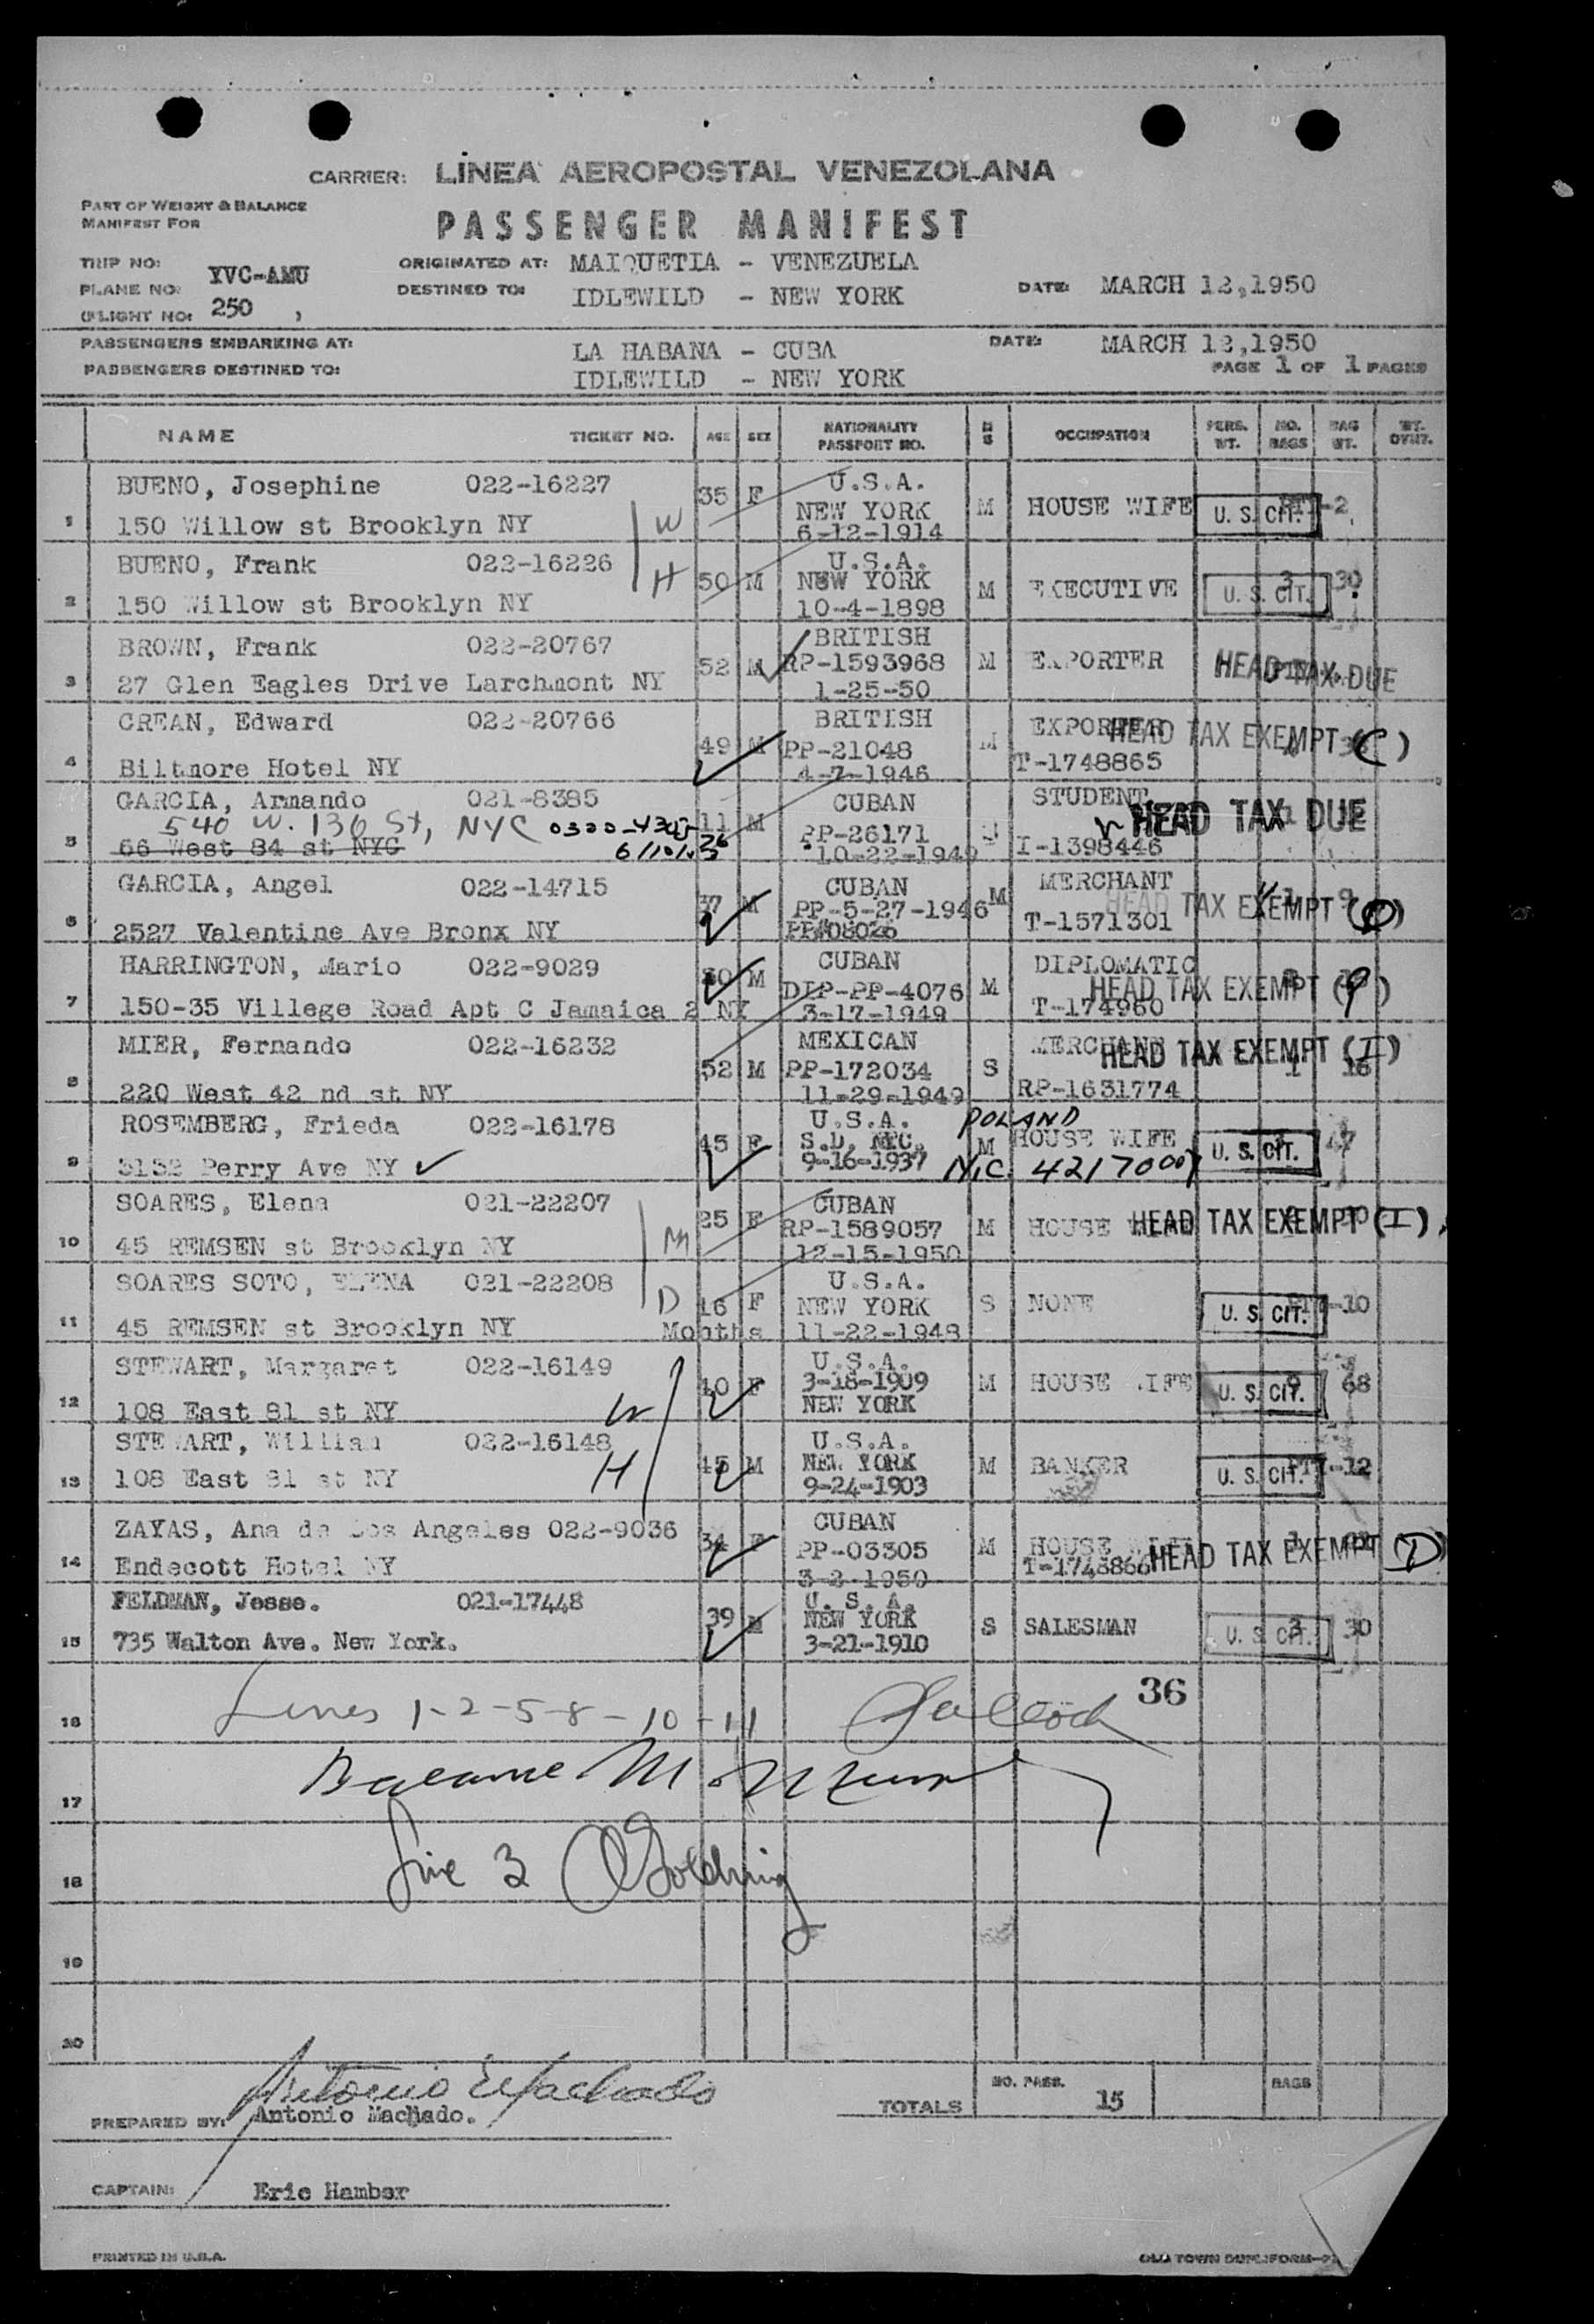 CARRIER: LINEA AEROPOSTAL VENEZOLANA
PART OF WEIGHT & BALANCE
MANIFEST FOR
PASSENGER MANIFEST
TRIP NO:
PLANE NO: YVC-AMU
(FLIGHT NO: 250 )
ORIGINATED AT: MAIQUETIA - VENEZUELA
DESTINED TO: IDLEWILD - NEW YORK
DATE: MARCH 12,1950
PASSENGERS EMBARKING AT: LA HABANA - CUBA
DATE: MARCH 12,1950
PASSENGERS DESTINED TO: IDLEWILD - NEW YORK
PAGE 1 OF 1 PAGES
NAME TICKET NO. AGE SEX NATIONALITY PASSPORT NO. M S OCCUPATION PERS. WT. NO. BAGS BAG WT. WT. OVHT.
BUENO, Josephine 022-16227 35 F U.S.A.
NEW YORK M HOUSE WIFE U. S. CIT.
1 150 Willow st Brooklyn NY W 6-12-1914
BUENO, Frank 022-16226 50 M U.S.A.
H NEW YORK M EXECUTIVE U. S. CIT. 3 30
2 150 Willow st Brooklyn NY 10-4-1898
BROWN, Frank 022-20767 BRITISH
52 M RP-1593968 M EXPORTER HEAD TAX DUE
3 27 Glen Eagles Drive Larchmont NY 1-25-50
CREAN, Edward 022-20766 BRITISH EXPORTER
49 M PP-21048 M HEAD TAX EXEMPT (C)
4 Biltmore Hotel NY 4-7-1946 T-1748865
GARCIA, Armando 021-8385 CUBAN STUDENT
540 W. 136 St, NYC 11 M PP-26171 HEAD TAX DUE
5 66 West 84 st NYC 10-22-1949 I-1398446
GARCIA, Angel 022-14715 CUBAN MERCHANT
37 M PP-5-27-1946 M HEAD TAX EXEMPT
6 2527 Valentine Ave Bronx NY PP#08026 T-1571301
HARRINGTON, Mario 022-9029 CUBAN DIPLOMATIC
30 M DIP-PP-4076 M HEAD TAX EXEMPT
7 150-35 Villege Road Apt C Jamaica 2 NY 3-17-1949 T-174960
MIER, Fernando 022-16232 MEXICAN MERCHANT
52 M PP-172034 S HEAD TAX EXEMPT (I) 1 16
8 220 West 42 nd st NY 11-29-1949 RP-1631774
ROSEMBERG, Frieda 022-16178 U.S.A. POLAND
45 F S.D. NYC. M HOUSE WIFE U. S. CIT. 47
9 3132 Perry Ave NY 9-16-1937 N.C. 4217000
SOARES, Elena 021-22207 CUBAN
25 F RP-1589057 M HOUSE HEAD TAX EXEMPT (I)
10 45 REMSEN st Brooklyn NY M 12-15-1950
SOARES SOTO, ELENA 021-22208 U.S.A.
D 16 F NEW YORK S NONE U. S. CIT.
11 45 REMSEN st Brooklyn NY Months 11-22-1948
STEWART, Margaret 022-16149 U.S.A.
40 F 3-18-1909 M HOUSE WIFE U. S. CIT. 68
12 108 East 81 st NY W NEW YORK
STEWART, William 022-16148 U.S.A.
45 M NEW YORK M BANKER U. S. CIT.
13 108 East 81 st NY H 9-24-1903
ZAYAS, Ana de Los Angeles 022-9036 CUBAN
34 F PP-03305 M HOUSE
14 Endecott Hotel NY 3-2-1950 T-1748866 HEAD TAX EXEMPT (D)
FELDMAN, Jesse. 021-17448 U. S. A.
39 M NEW YORK S SALESMAN U. S. CIT. 3 30
15 735 Walton Ave. New York. 3-21-1910
36
16 Lines 1-2-5-8-10-11
17 Balance
18 Line 3
19
20
Antonio Machado
PREPARED BY: Antonio Machado.
TOTALS NO. PASS. 15 BAGS
CAPTAIN: Eric Hamber
PRINTED IN U.S.A.
OLD TOWN DUPLIFORM